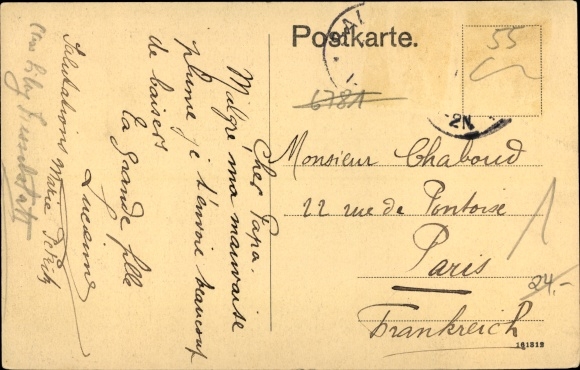 Postkarte.
55
678A
2N
Cher Papa.
Malgré ma mauvaise
plume je t'envoie beaucoup
de baisers
ta grande fille
Lucienne
Salutations Marie
Monsieur Chaboud
22 rue de Pontoise
Paris
Frankreich
24.-
161312